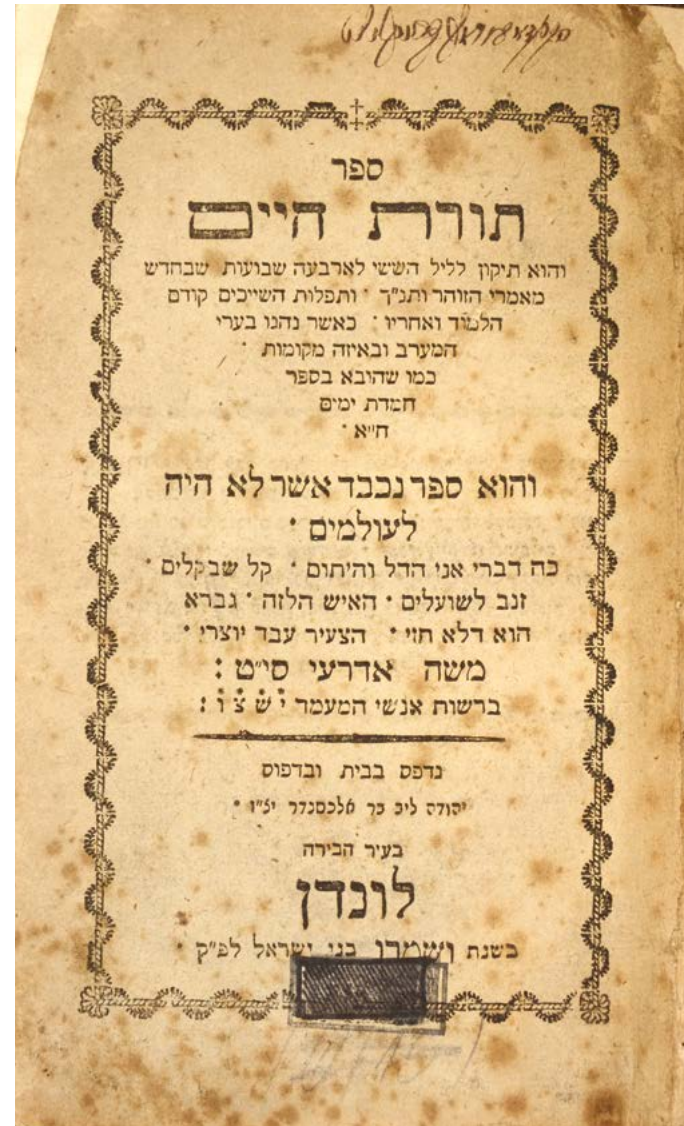 ספר
תורת חיים
והוא תיקון לליל הששי לארבעה שבועות שבחדש
מאמרי הזוהר ותנ"ך · ותפלות השייכים קודם
הלמוד ואחריו · כאשר נהגו בערי
המערב ובאיזה מקומות ·
כמו שהובא בספר
חמדת ימים
ח"א ·
והוא ספר נכבד אשר לא היה
לעולמים ·
כה דברי אני הדל והיתום · קל שבקלים ·
זנב לשועלים · האיש הלזה · גברא
הוא דלא חזי · הצעיר עבד יוצרי ·
משה אדרעי סי"ט :
ברשות אנשי המעמד ישצ"ו :
נדפס בבית ובדפוס
יהודה ליב בר אלכסנדר יצ"ו ·
בעיר הבירה
לונדן
בשנת ושמרו בני ישראל לפ"ק ·